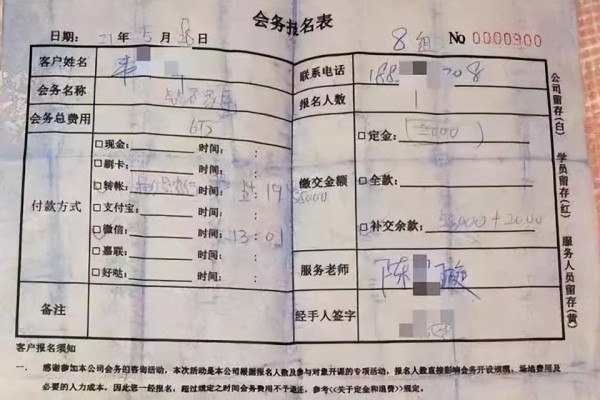 会务报名表
日期: 21 年 5 月 日 8组 No 0000300
客户姓名 联系电话 188 08
会务名称 报名人数 1
会务总费用
付款方式 □现金: 时间: :
□刷卡: 时间: :
□转帐: 时间: :
□支付宝: 时间: :
□微信: 时间: 13:01
□嘉联: 时间: :
□好哒: 时间: :
缴交金额 □定金: (5000)
□全款:
□补交余款: 55000+2000
服务老师 陈 璇
备注 经手人签字
公司留存(白) 学员留存(红) 服务人员留存(黄)
客户报名须知
一. 感谢参加本公司会务的咨询活动,本次活动是本公司根据报名人数及参与对象开课的专项活动,报名人数直接影响会务开设规模,场地费用及
必要的人力成本。因此您一经报名,超过规定之时间会务费用不予退还,参考<<关于定金和退费>>规定。